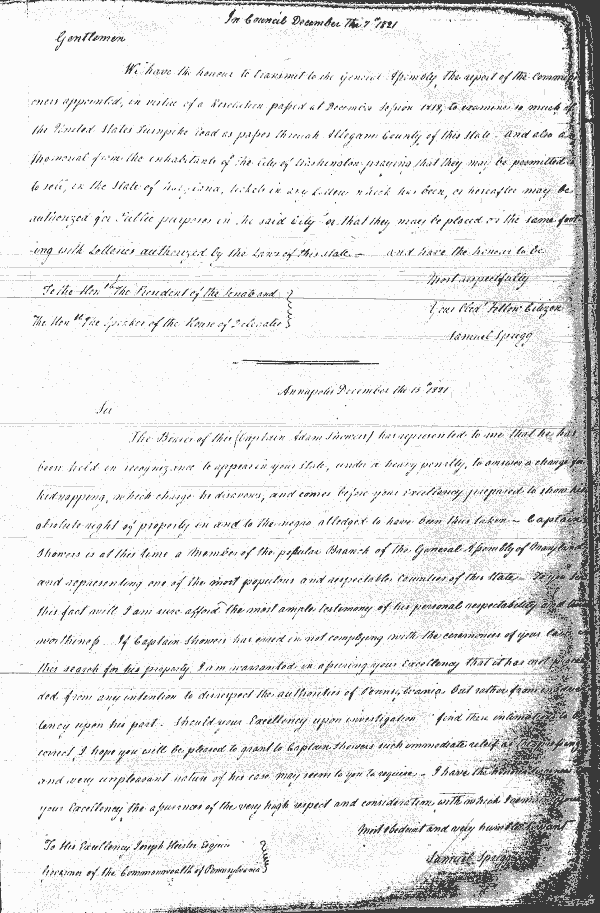 In Council December the 7th 1821
Gentlemen
We have the honour to transmit to the General Assembly, the report of the Commissi
oners appointed, in virtue of a Resolution passed at December Session 1818, to examine so much of
the United States Turnpike road as passes through Allegany County, of this State. And also a
Memorial from the inhabitants of the City of Washington praying that they may be permitted
to sell, in the State of Maryland, tickets in any Lottery which has been, or hereafter may be
authorized for Public purposes in the said City or that they may be placed on the same foot-
ing with Lotteries authorized by the Laws of this State — and have the honour to be
Most respectfully
To the Honble The President of the Senate and
Your Obedt Fellow Citizen
The Honble The Speaker of the House of Delegates
Samuel Sprigg
Annapolis December the 13th 1821
Sir
The Bearer of this (Captain Adam Showers) has represented to me that he has
been held in recognizance to appear in your State, under a heavy penalty, to answer a charge for
kidnapping, which charge he disavows, and comes before your Excellency prepared to show his
absolute right of property in and to the negro alledged to have been thus taken — Captain
Showers is at this time a Member of the popular Branch of the General Assembly of Maryland
and representing one of the most populous and respectable Counties of this State. To you Sir
this fact will I am sure afford the most ample testimony of his personal respectability and
worthiness. If Captain Showers has erred in not complying with the ceremonies of your law in
this search for his property I am warranted in assuring your Excellency that it has not procee
ded from any intention to disrespect the authorities of Pennsylvania but rather from
tency upon his part. Should your Excellency upon investigation find these
correct, I hope you will be pleased to grant to Captain Showers such immediate relief as
and very unpleasant nature of his case may seem to you to require. I have the honour
your Excellency the assurances of the very high respect and consideration with which I am
Most obedient and very humble Servant
To His Excellency Joseph Heister Esquire
Samuel Sprigg
Governor of the Commonwealth of Pennsylvania